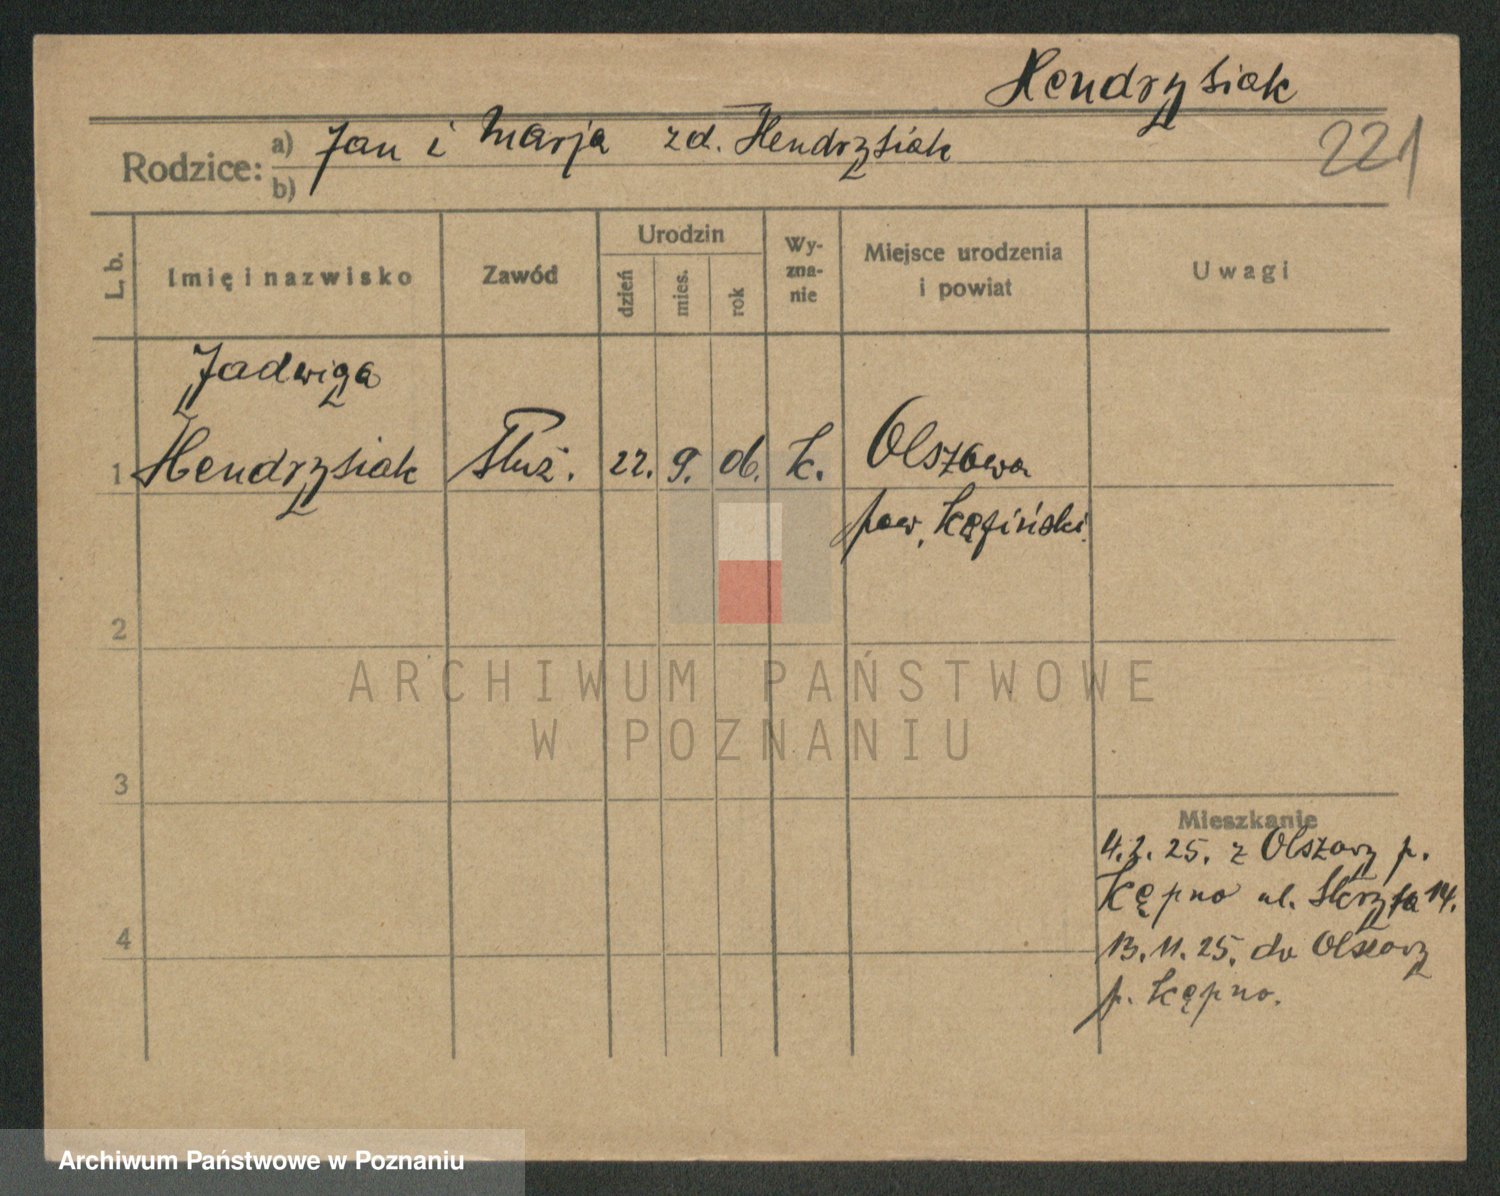 Hendrzysiak
221
Rodzice: a) Jan i Marja zd. Hendrzysiak
b)
L. b. Imię i nazwisko Zawód Urodzin dzień mies. rok Wy-zna-nie Miejsce urodzenia i powiat Uwagi
Jadwiga
1 Hendrzysiak Służ. 22. 9. 06. k. Olszowa
pow. Kępiński.
2
3
4
Mieszkanie
4.2.25. z Olszowy p.
Kępno ul. 14.
13.11.25. do Olszowy
p. Kępno.
ARCHIWUM PAŃSTWOWE
W POZNANIU
Archiwum Państwowe w Poznaniu